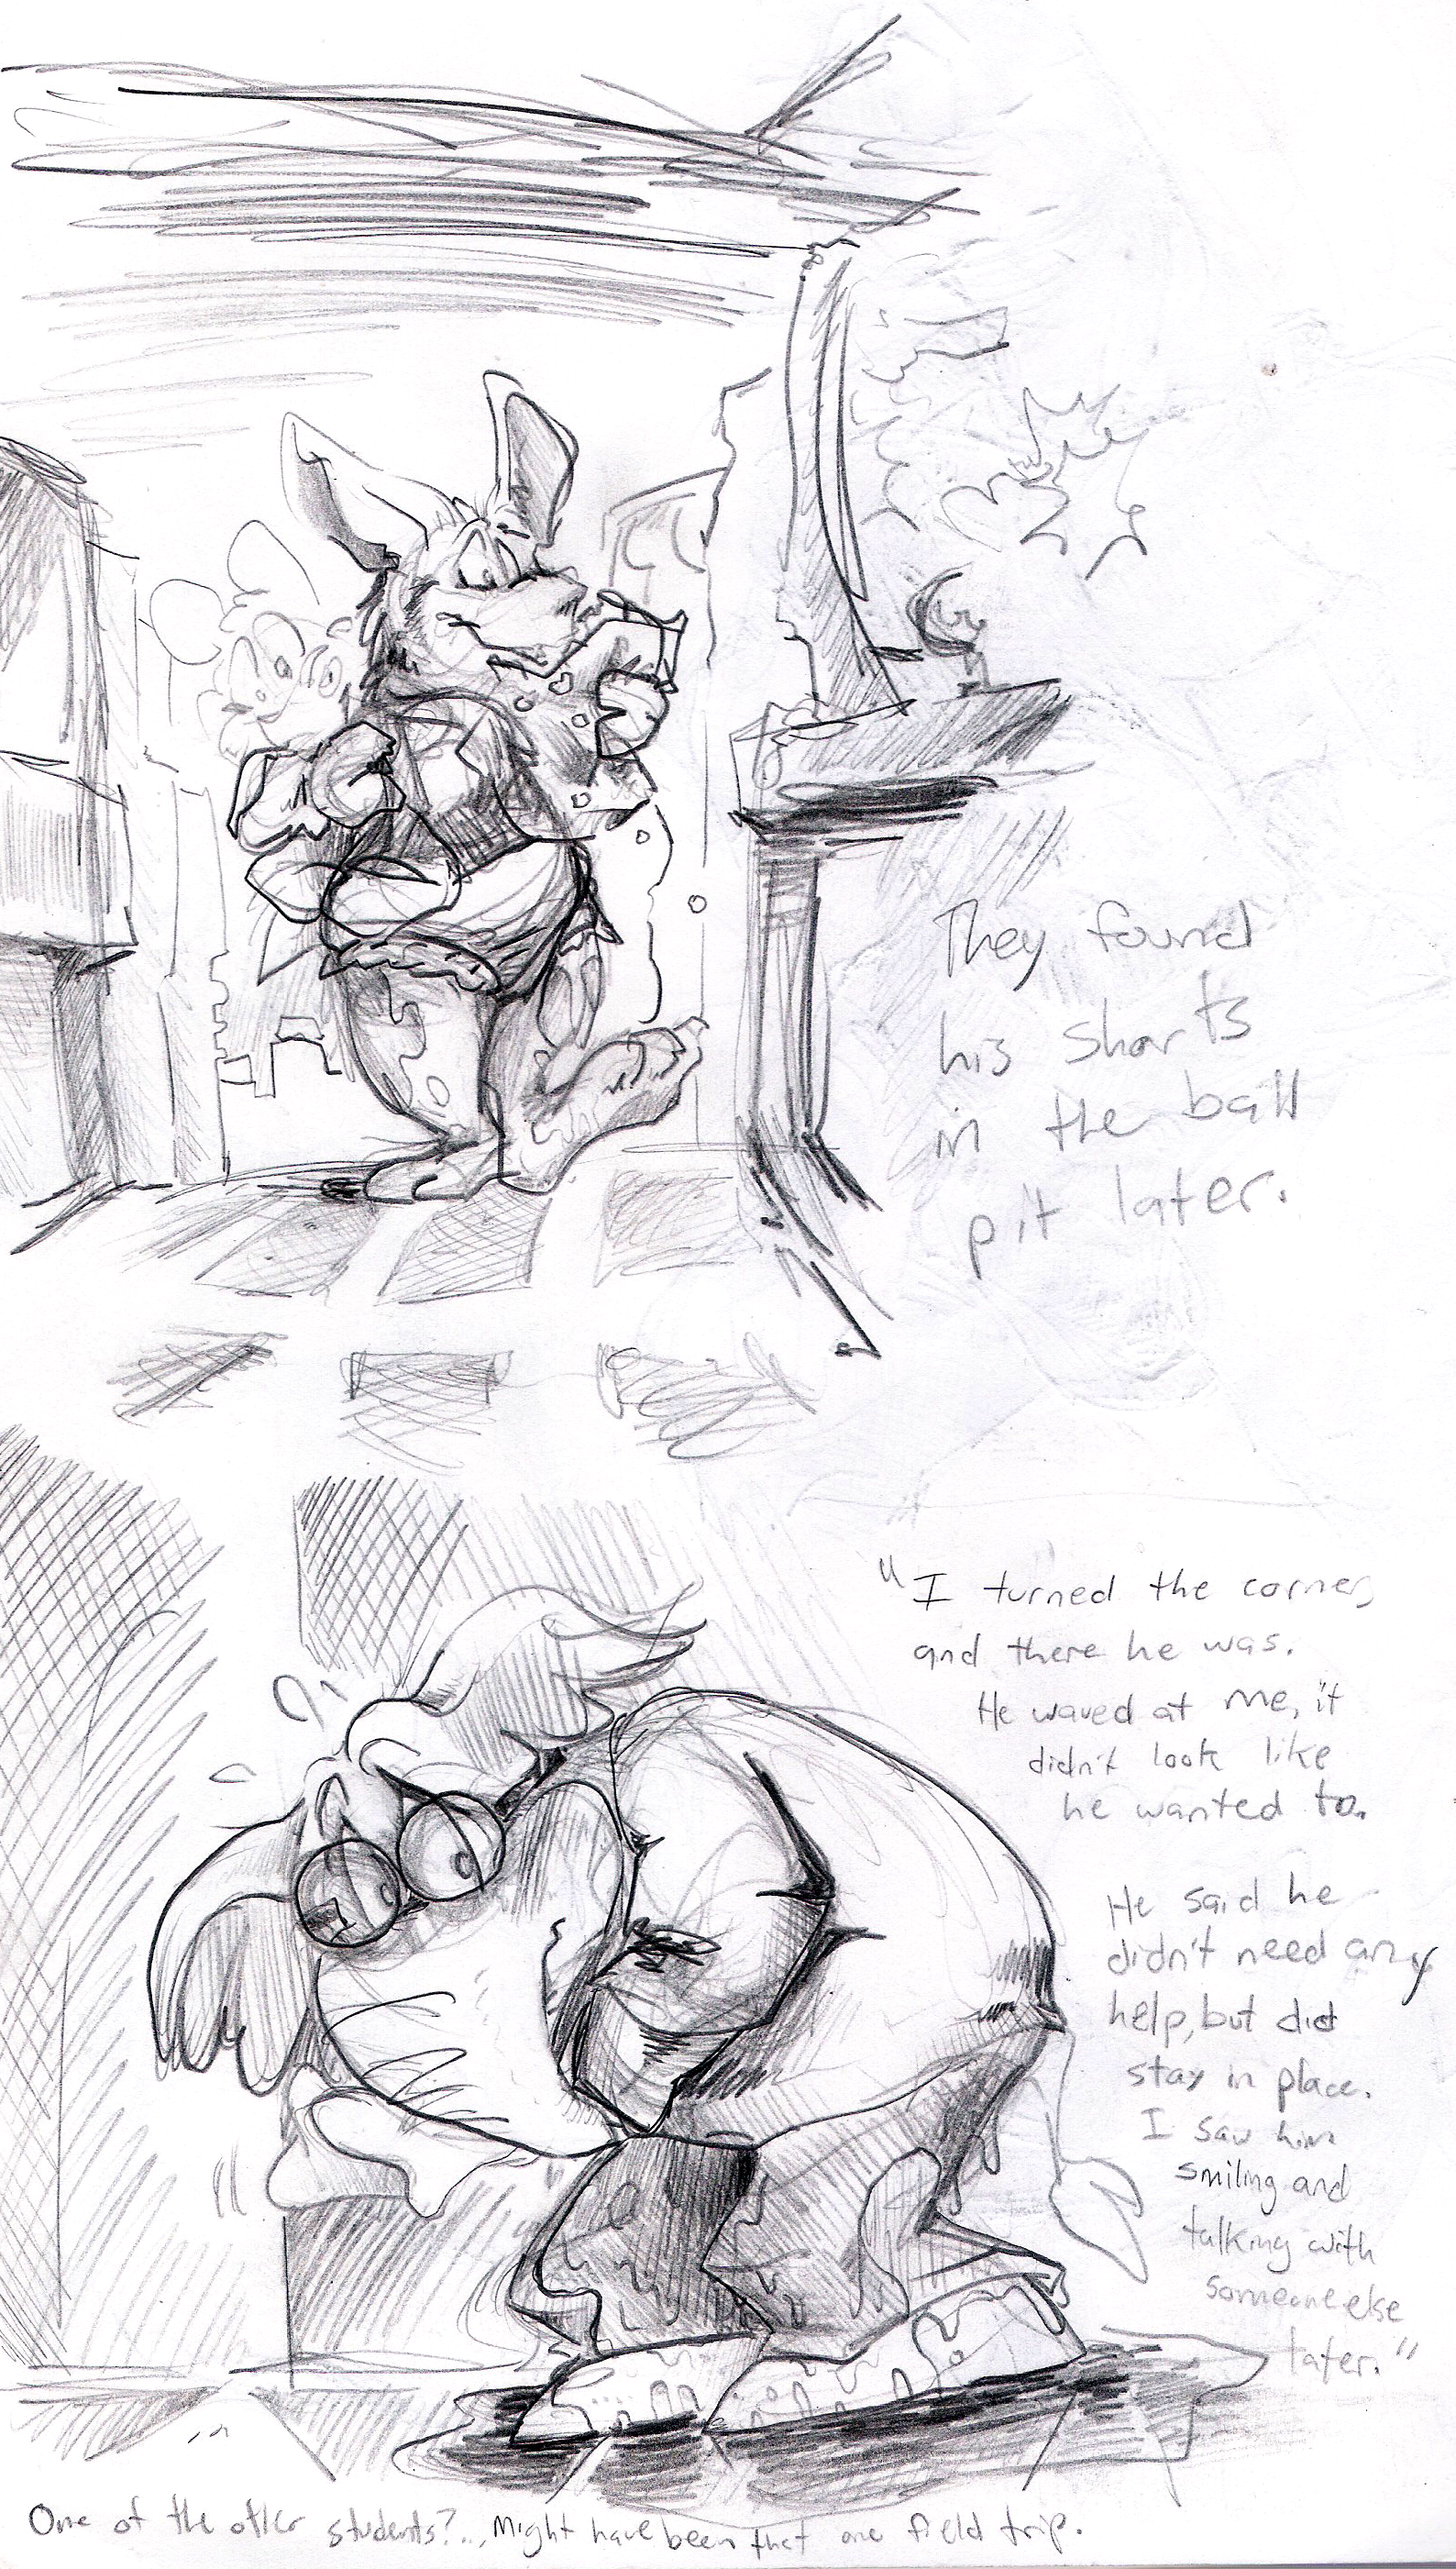 They found
his shorts
in the ball
pit later.
"I turned the corner,
and there he was.
He waved at me, it
didn't look like
he wanted to.
He said he
didn't need any
help, but did
stay in place.
I saw him
smiling and
talking with
someone else
later."
One of the other students?... Might have been that one field trip.